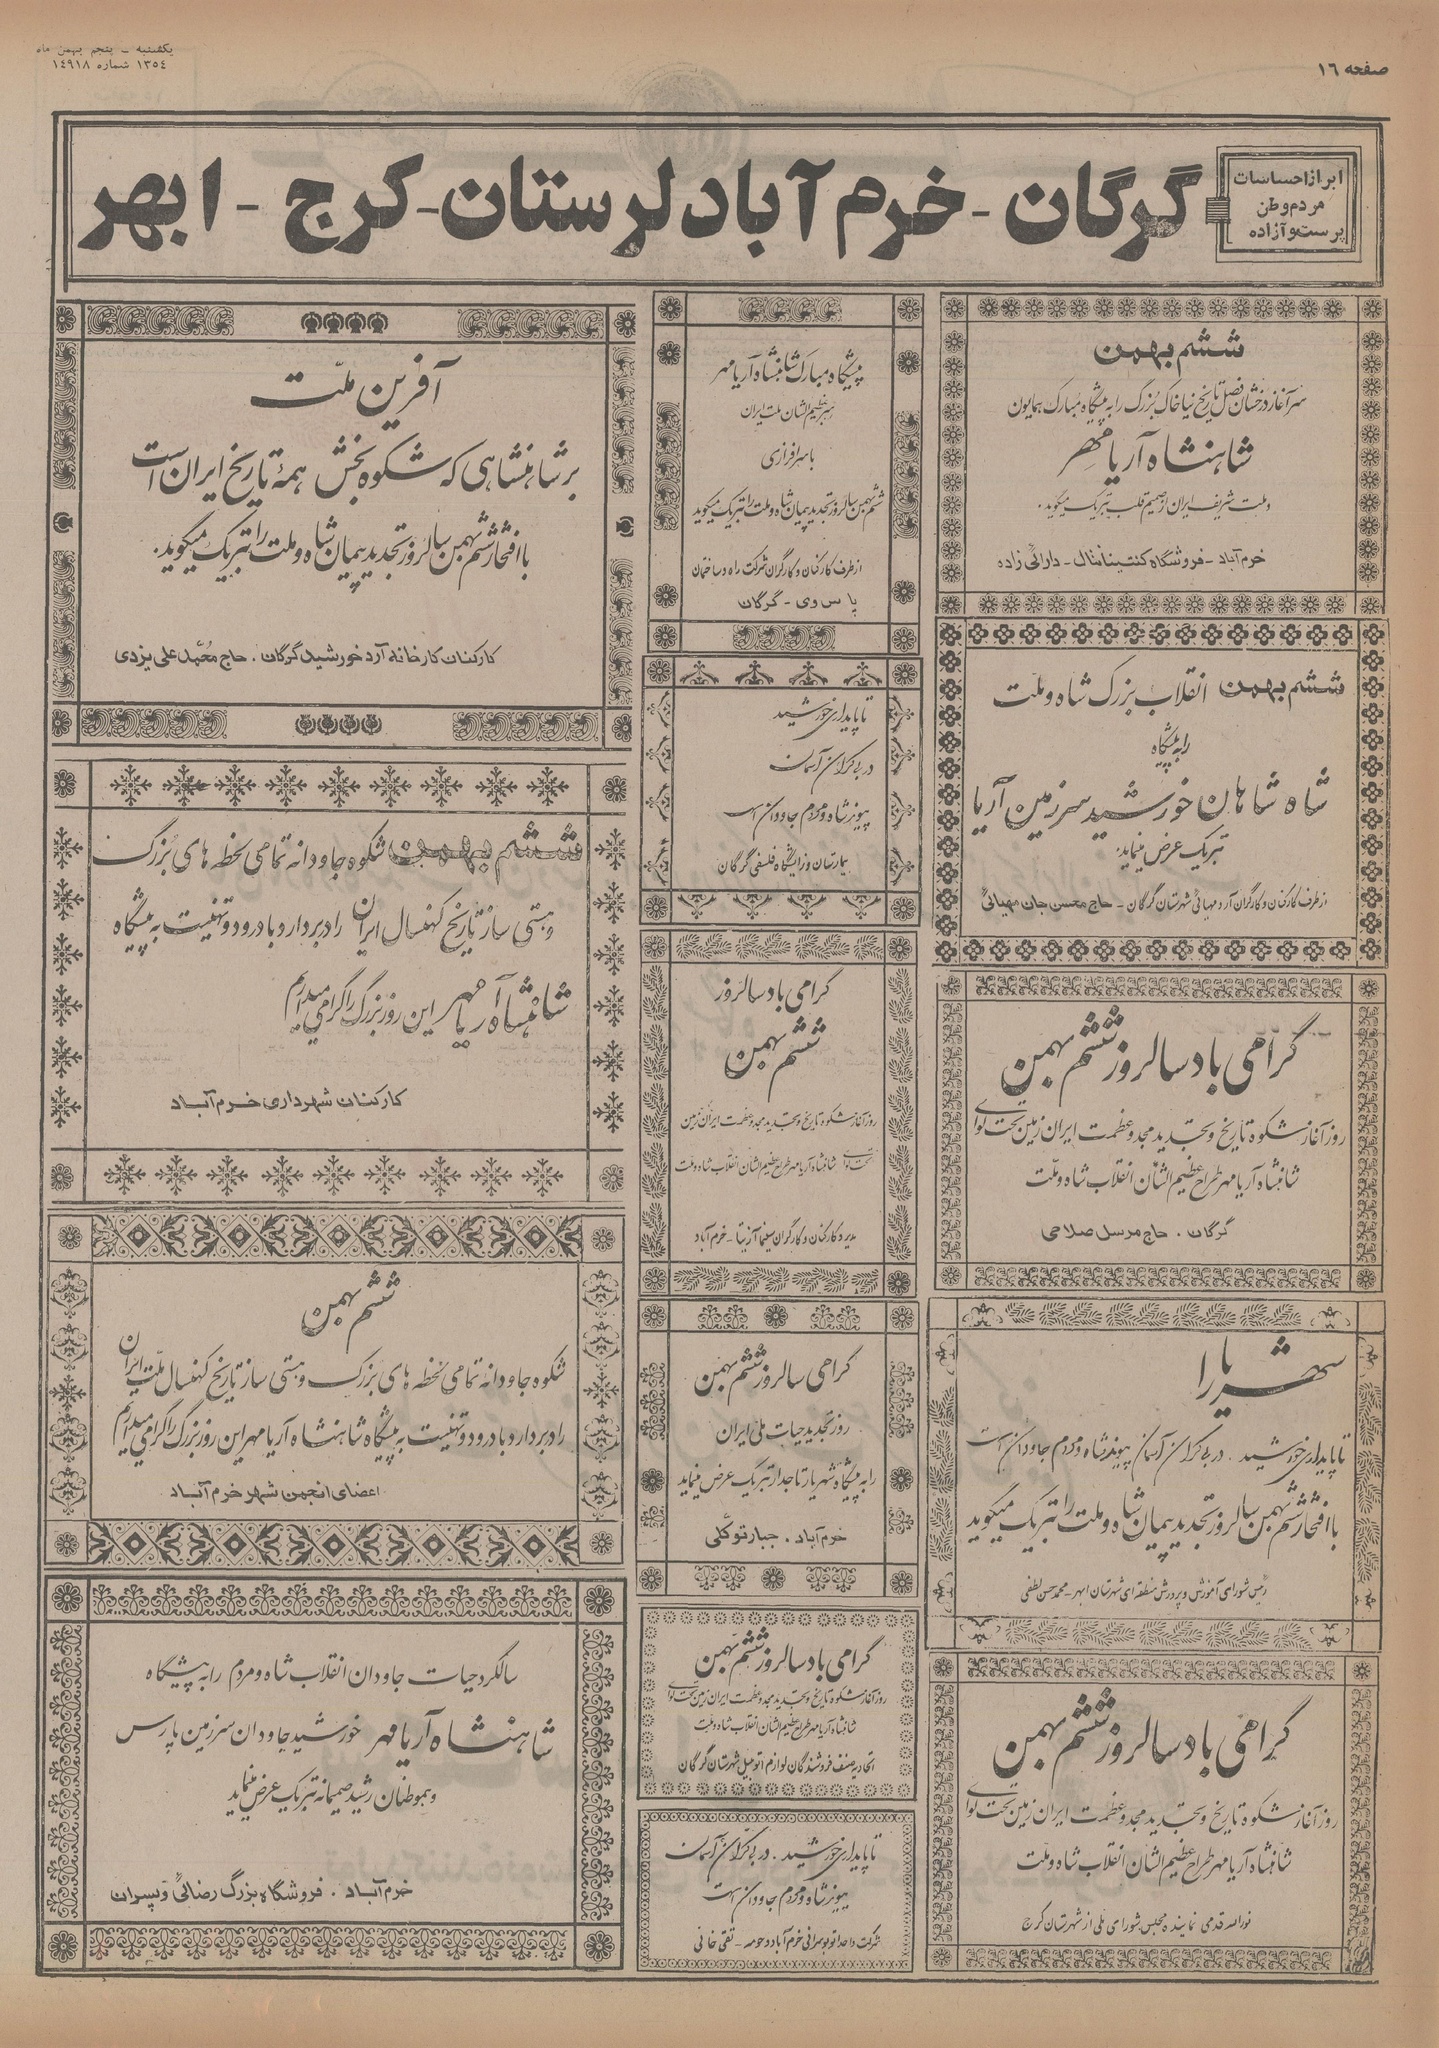 صفحه ۱۶
یکشنبه ـ پنجم بهمن ماه
۱۳۵٤ شماره ۱٤۹۱۸
ابراز احساسات
مردم وطن
پرست و آزاده
گرگان - خرم آباد لرستان - کرج - ابهر
ششم بهمن
سرآغاز درخشان فصل تاریخ نیاخاک بزرگ را به پیشگاه مبارک همایون
شاهنشاه آریامهر
و ملت شریف ایران از صمیم قلب تبریک میگوید.
خرم آباد - فروشگاه کنتیننتال - دارائی زاده
ششم بهمن انقلاب بزرگ شاه و ملت
را به پیشگاه
شاه شاهان خورشید سرزمین آریا
تبریک عرض مینماید.
از طرف کارکنان و کارگران آرد مهیائی شهرستان گرگان - حاج محسن جان مهیائی
گرامی باد سالروز ششم بهمن
روز آغاز شکوه تاریخ و تجدید مجد و عظمت ایران زمین تحت لوای
شاهنشاه آریامهر طراح عظیم الشان انقلاب شاه و ملت
گرگان . حاج مرسل صلاحی
شهریارا
تا پایداری خورشید . در بی کران آسمان پیوند شاه و مردم جاودان است
با افتخار ششم بهمن سالروز تجدید پیمان شاه و ملت را تبریک میگوید
رئیس شورای آموزش و پرورش منطقه ای شهرستان ابهر - محمد حسن لطفی
گرامی باد سالروز ششم بهمن
روز آغاز شکوه تاریخ و تجدید مجد و عظمت ایران زمین تحت لوای
شاهنشاه آریامهر طراح عظیم الشان انقلاب شاه و ملت
نورالله قدمی نماینده مجلس شورای ملی از شهرستان کرج
پیشگاه مبارک شاهنشاه آریامهر
رهبر عظیم الشان ملت ایران
با سرافرازی
ششم بهمن سالروز تجدید پیمان شاه و ملت را تبریک میگوید
از طرف کارکنان و کارگران شرکت راه و ساختمان
پاس وی - گرگان
تا پایداری خورشید
در بی کران آسمان
پیوند شاه و مردم جاودان است
بیمارستان و زایشگاه فلسفی گرگان
گرامی باد سالروز
ششم بهمن
روز آغاز شکوه تاریخ و تجدید مجد و عظمت ایران زمین
تحت لوای شاهنشاه آریامهر طراح عظیم الشان انقلاب شاه و ملت
مدیر و کارکنان و کارگران سینما آزیتا - خرم آباد
گرامی سالروز ششم بهمن
روز تجدید حیات ملی ایران
را به پیشگاه شهریار تاجدار تبریک عرض مینماید
خرم آباد . جبار توکلی
گرامی باد سالروز ششم بهمن
روز آغاز شکوه تاریخ و تجدید مجد و عظمت ایران زمین تحت لوای
شاهنشاه آریامهر طراح عظیم الشان انقلاب شاه و ملت
اتحادیه صنف فروشندگان لوازم اتومبیل شهرستان گرگان
تا پایداری خورشید . در بی کران آسمان
پیوند شاه و مردم جاودان است
شرکت واحد اتوبوسرانی خرم آباد و حومه - تقی خانی
آفرین ملت
بر شاهنشاهی که شکوه بخش همهٔ تاریخ ایران است
با افتخار ششم بهمن سالروز تجدید پیمان شاه و ملت را تبریک میگوید.
کارکنان کارخانه آرد خورشید گرگان . حاج محمد علی یزدی
ششم بهمن شکوه جاودانه تمامی لحظه های بزرگ
و هستی ساز تاریخ کهنسال ایران را در بردارد با درود و تهنیت به پیشگاه
شاهنشاه آریامهر این روز بزرگ را گرامی میداریم
کارکنان شهرداری خرم آباد
ششم بهمن
شکوه جاودانه تمامی لحظه های بزرگ و هستی ساز تاریخ کهنسال ملت ایران
را در بردارد با درود و تهنیت به پیشگاه شاهنشاه آریامهر این روز بزرگ را گرامی میداریم
اعضای انجمن شهر خرم آباد
سالگرد حیات جاودان انقلاب شاه و مردم را به پیشگاه
شاهنشاه آریامهر خورشید جاودان سرزمین پارس
و هموطنان رشید صمیمانه تبریک عرض مینماید
خرم آباد . فروشگاه بزرگ رضائی و پسران